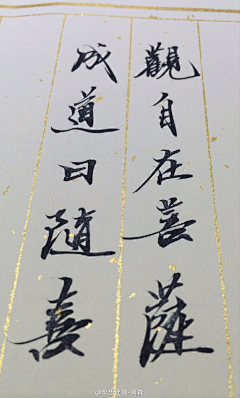 觀自在菩薩
成道日隨喜